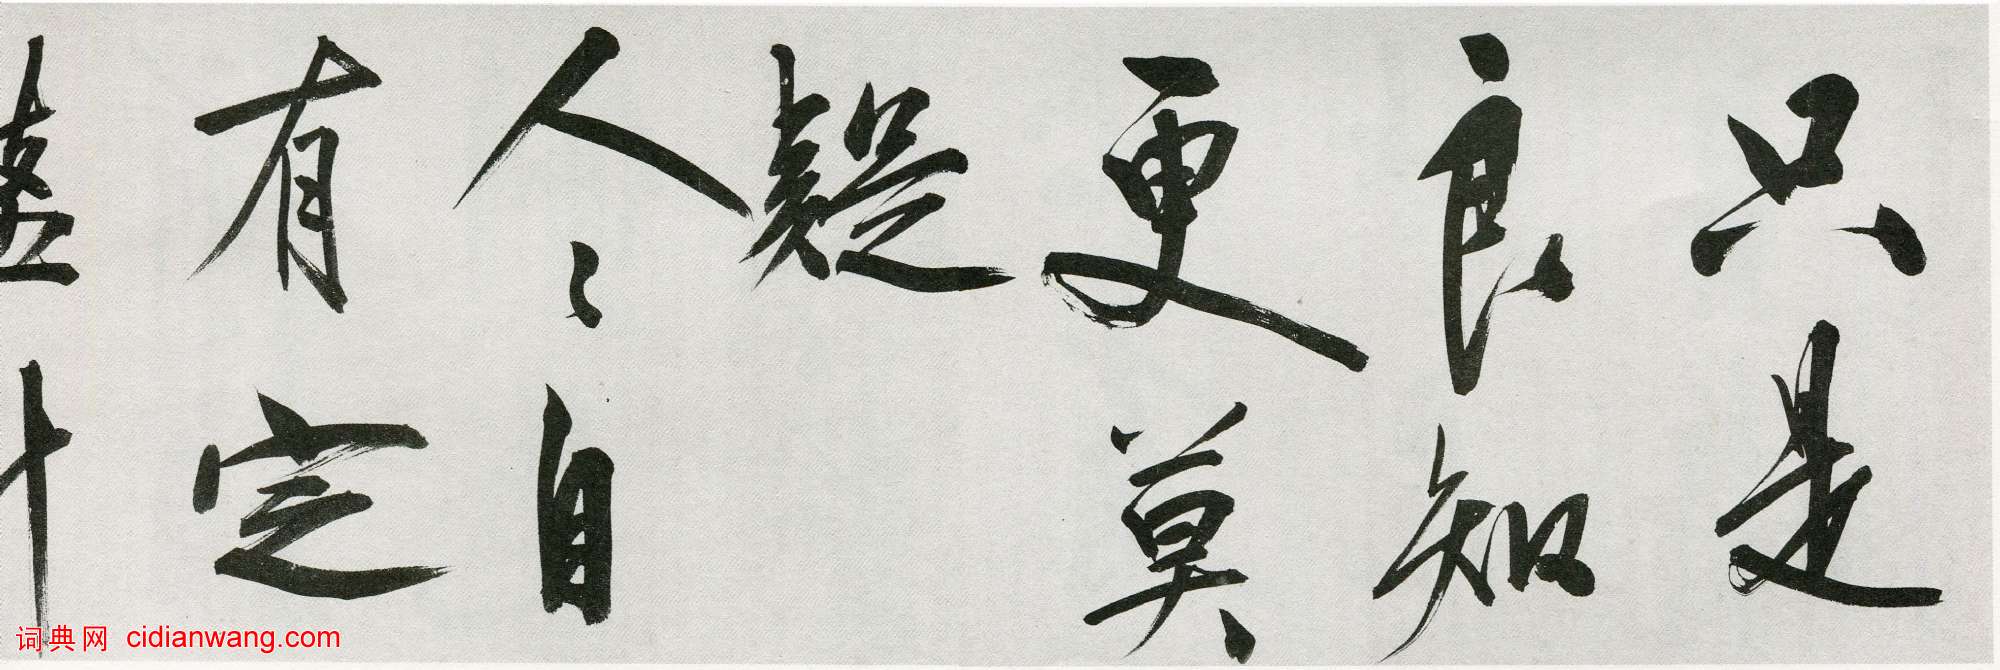 只是
良知
更莫
疑
人〻自
有定
词典网 cidianwang.com